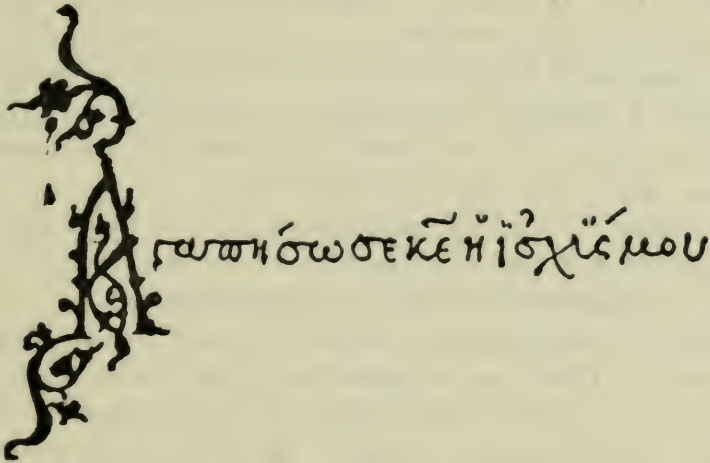 Αγαπήσω σε κε̃ ἡ ϊσχΰς μου